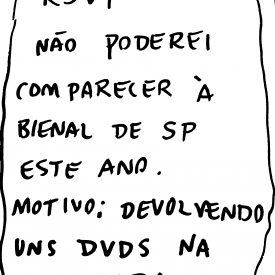 RSVP
NÃO PODEREI
COMPARECER À
BIENAL DE SP
ESTE ANO.
MOTIVO: DEVOLVENDO
UNS DVDS NA